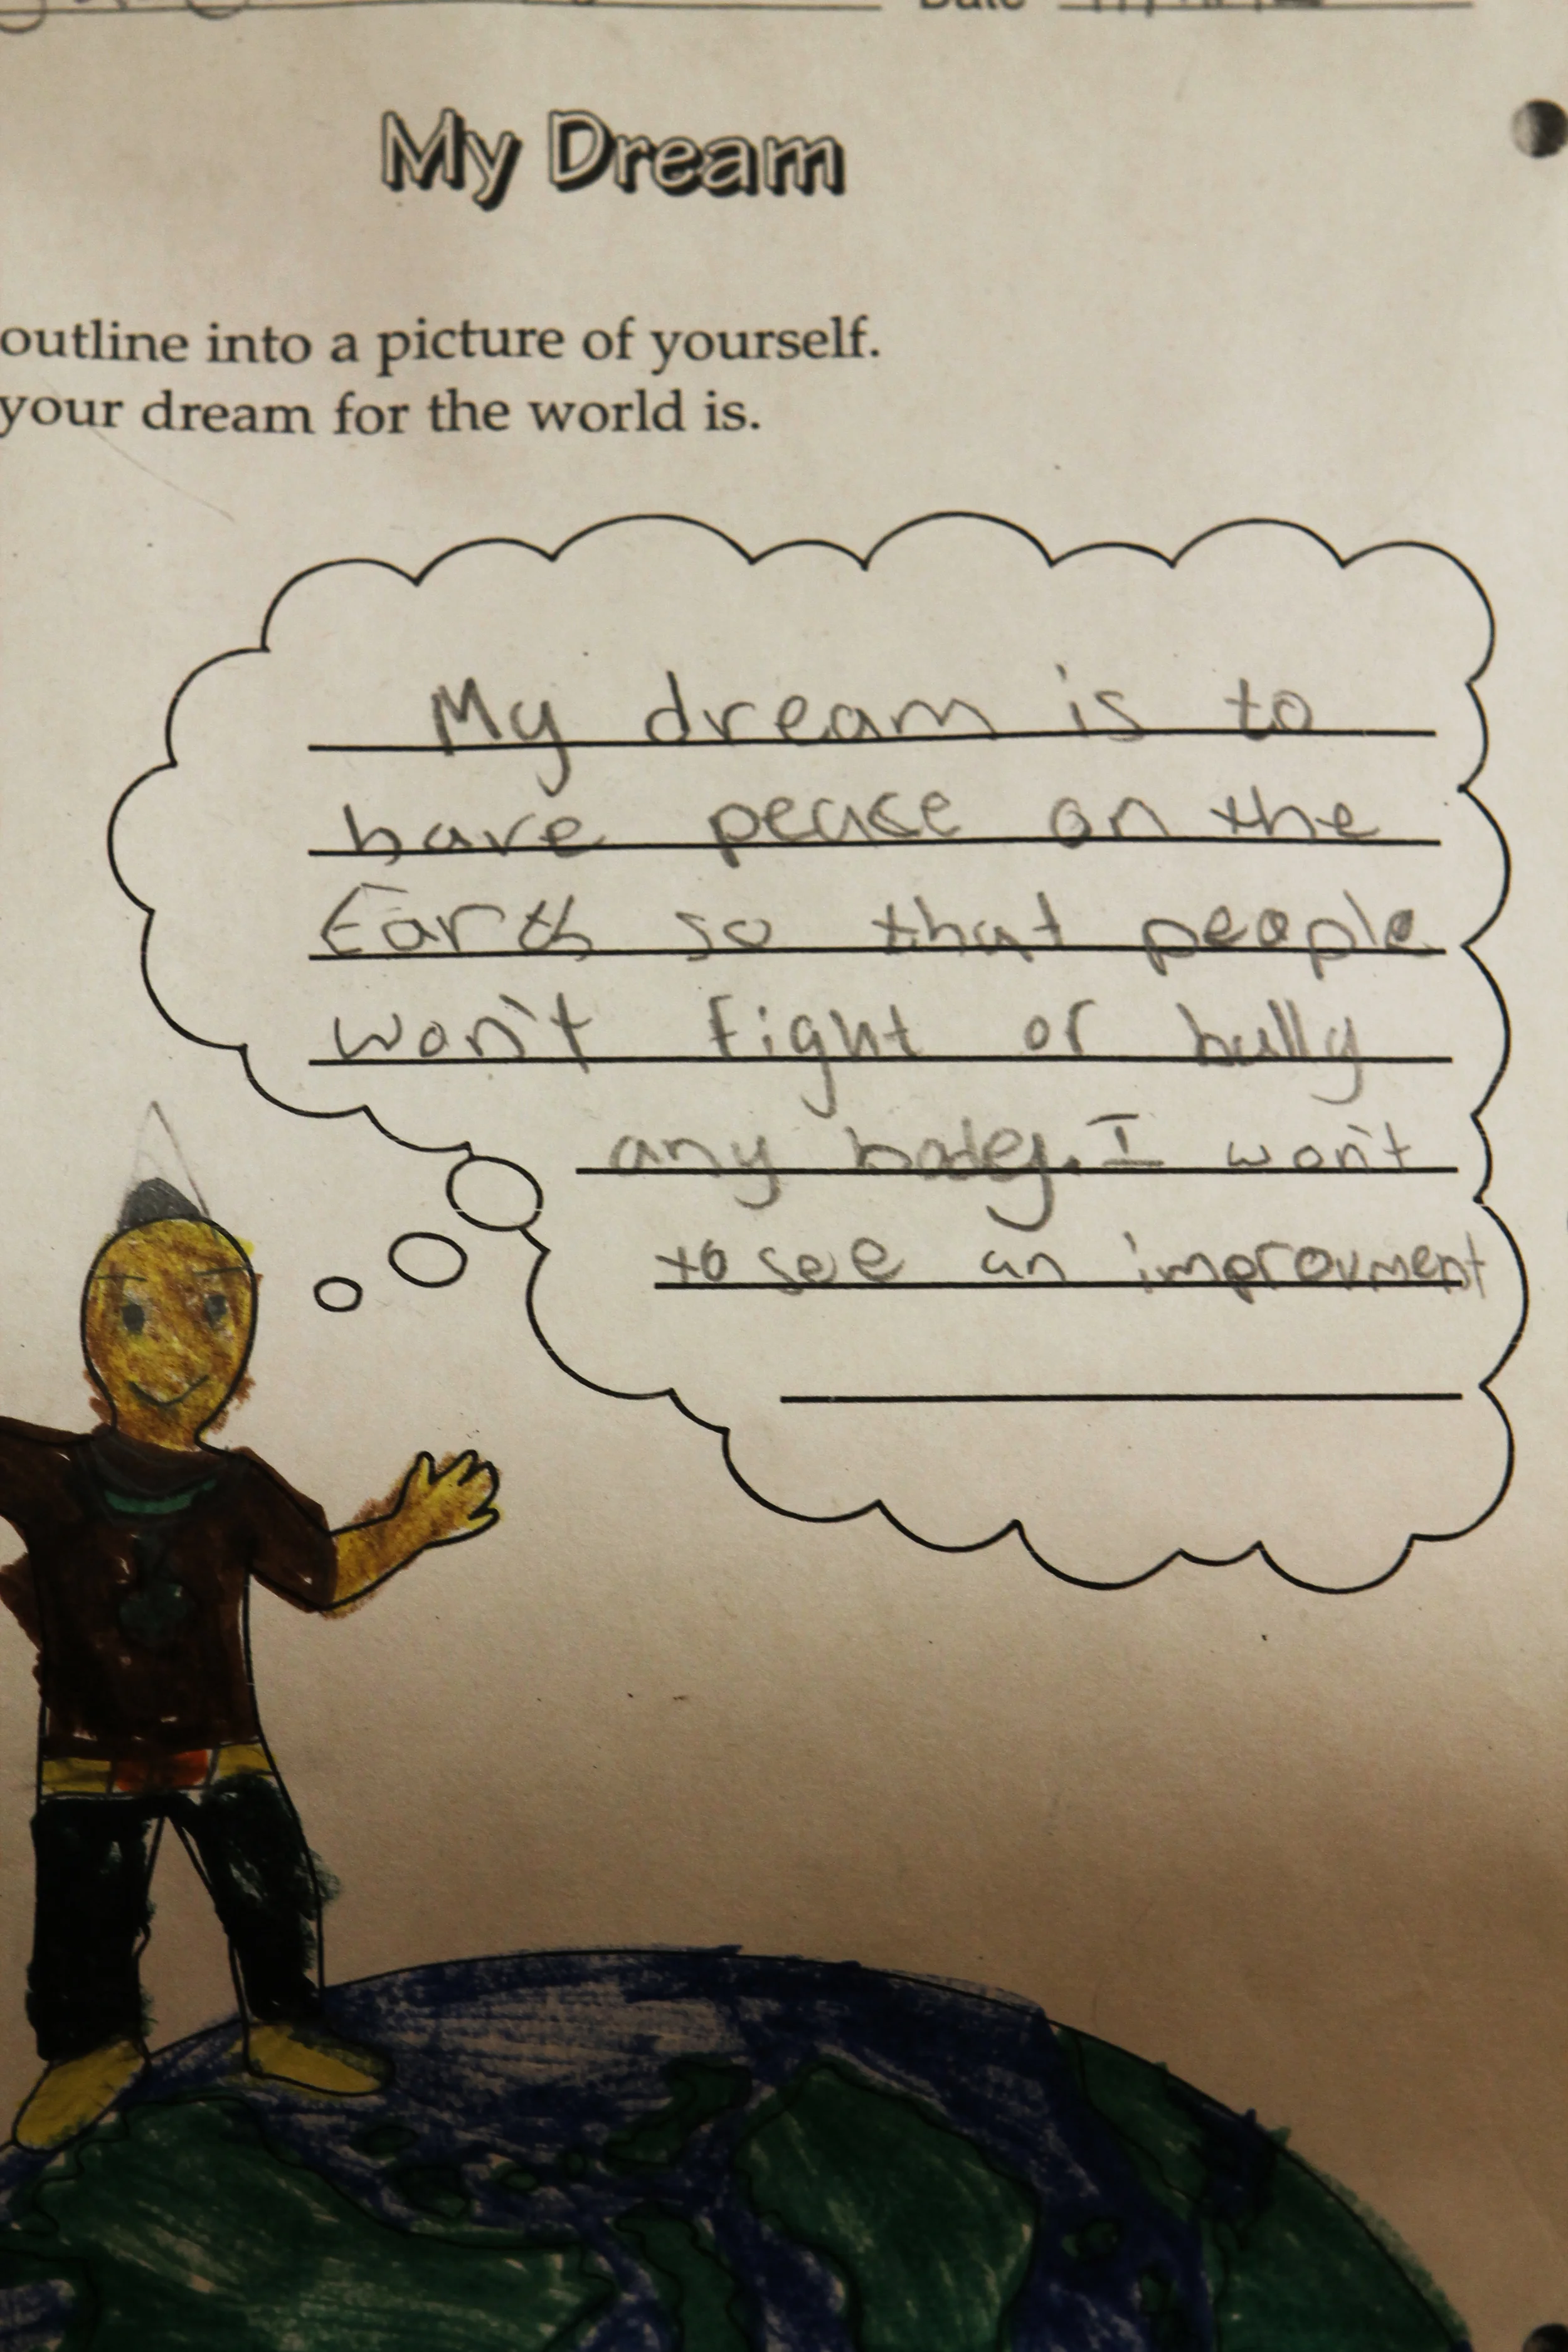 Date
My Dream
outline into a picture of yourself.
your dream for the world is.
My dream is to
have peace on the
Earth so that people
won't fight or bully
any body. I won't
to see an improvment